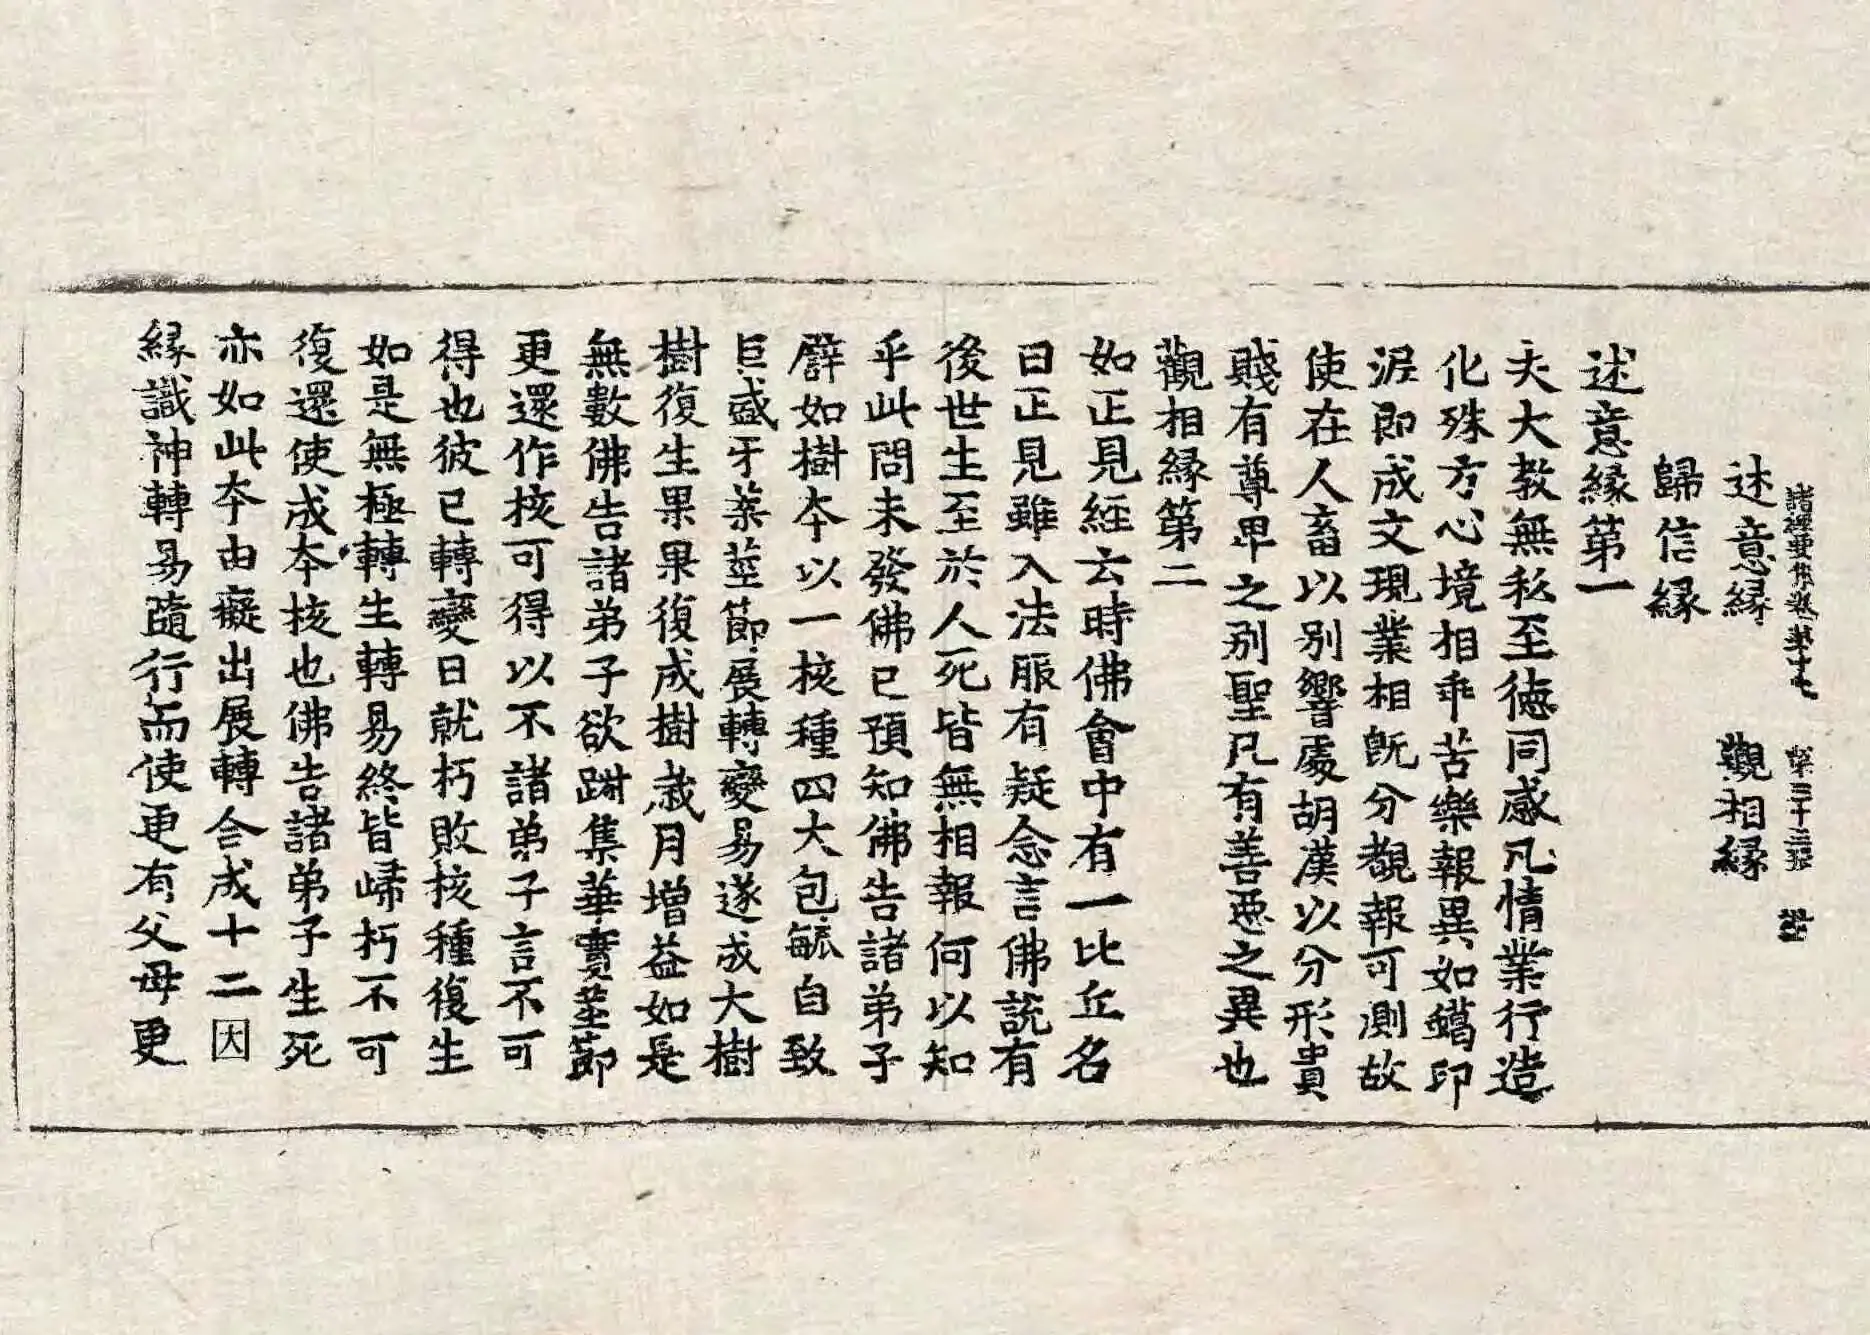 述意緣　觀相緣
歸信緣
述意緣第一
夫大教無私至德同感凡情業行造
化殊方心境相乖苦樂報異如蠟印
泥即成文現業相既分覩報可測故
使在人畜以別響處胡漢以分形貴
賤有尊卑之別聖凡有善惡之異也
觀相緣第二
如正見經云時佛會中有一比丘名
曰正見雖入法服有疑念言佛說有
後世生至於人死皆無相報何以知
乎此問未發佛已預知佛告諸弟子
譬如樹本以一核種四大包毓自致
巨盛牙葉莖節展轉變易遂成大樹
樹復生果果復成樹歲月增益如是
無數佛告諸弟子欲踧集華實莖節
更還作核可得以不諸弟子言不可
得也彼已轉變日就朽敗核種復生
如是無極轉生轉易終皆歸朽不可
復還使成本核也佛告諸弟子生死
亦如此本由癡出展轉合成十二因
緣識神轉易隨行而使更有父母更